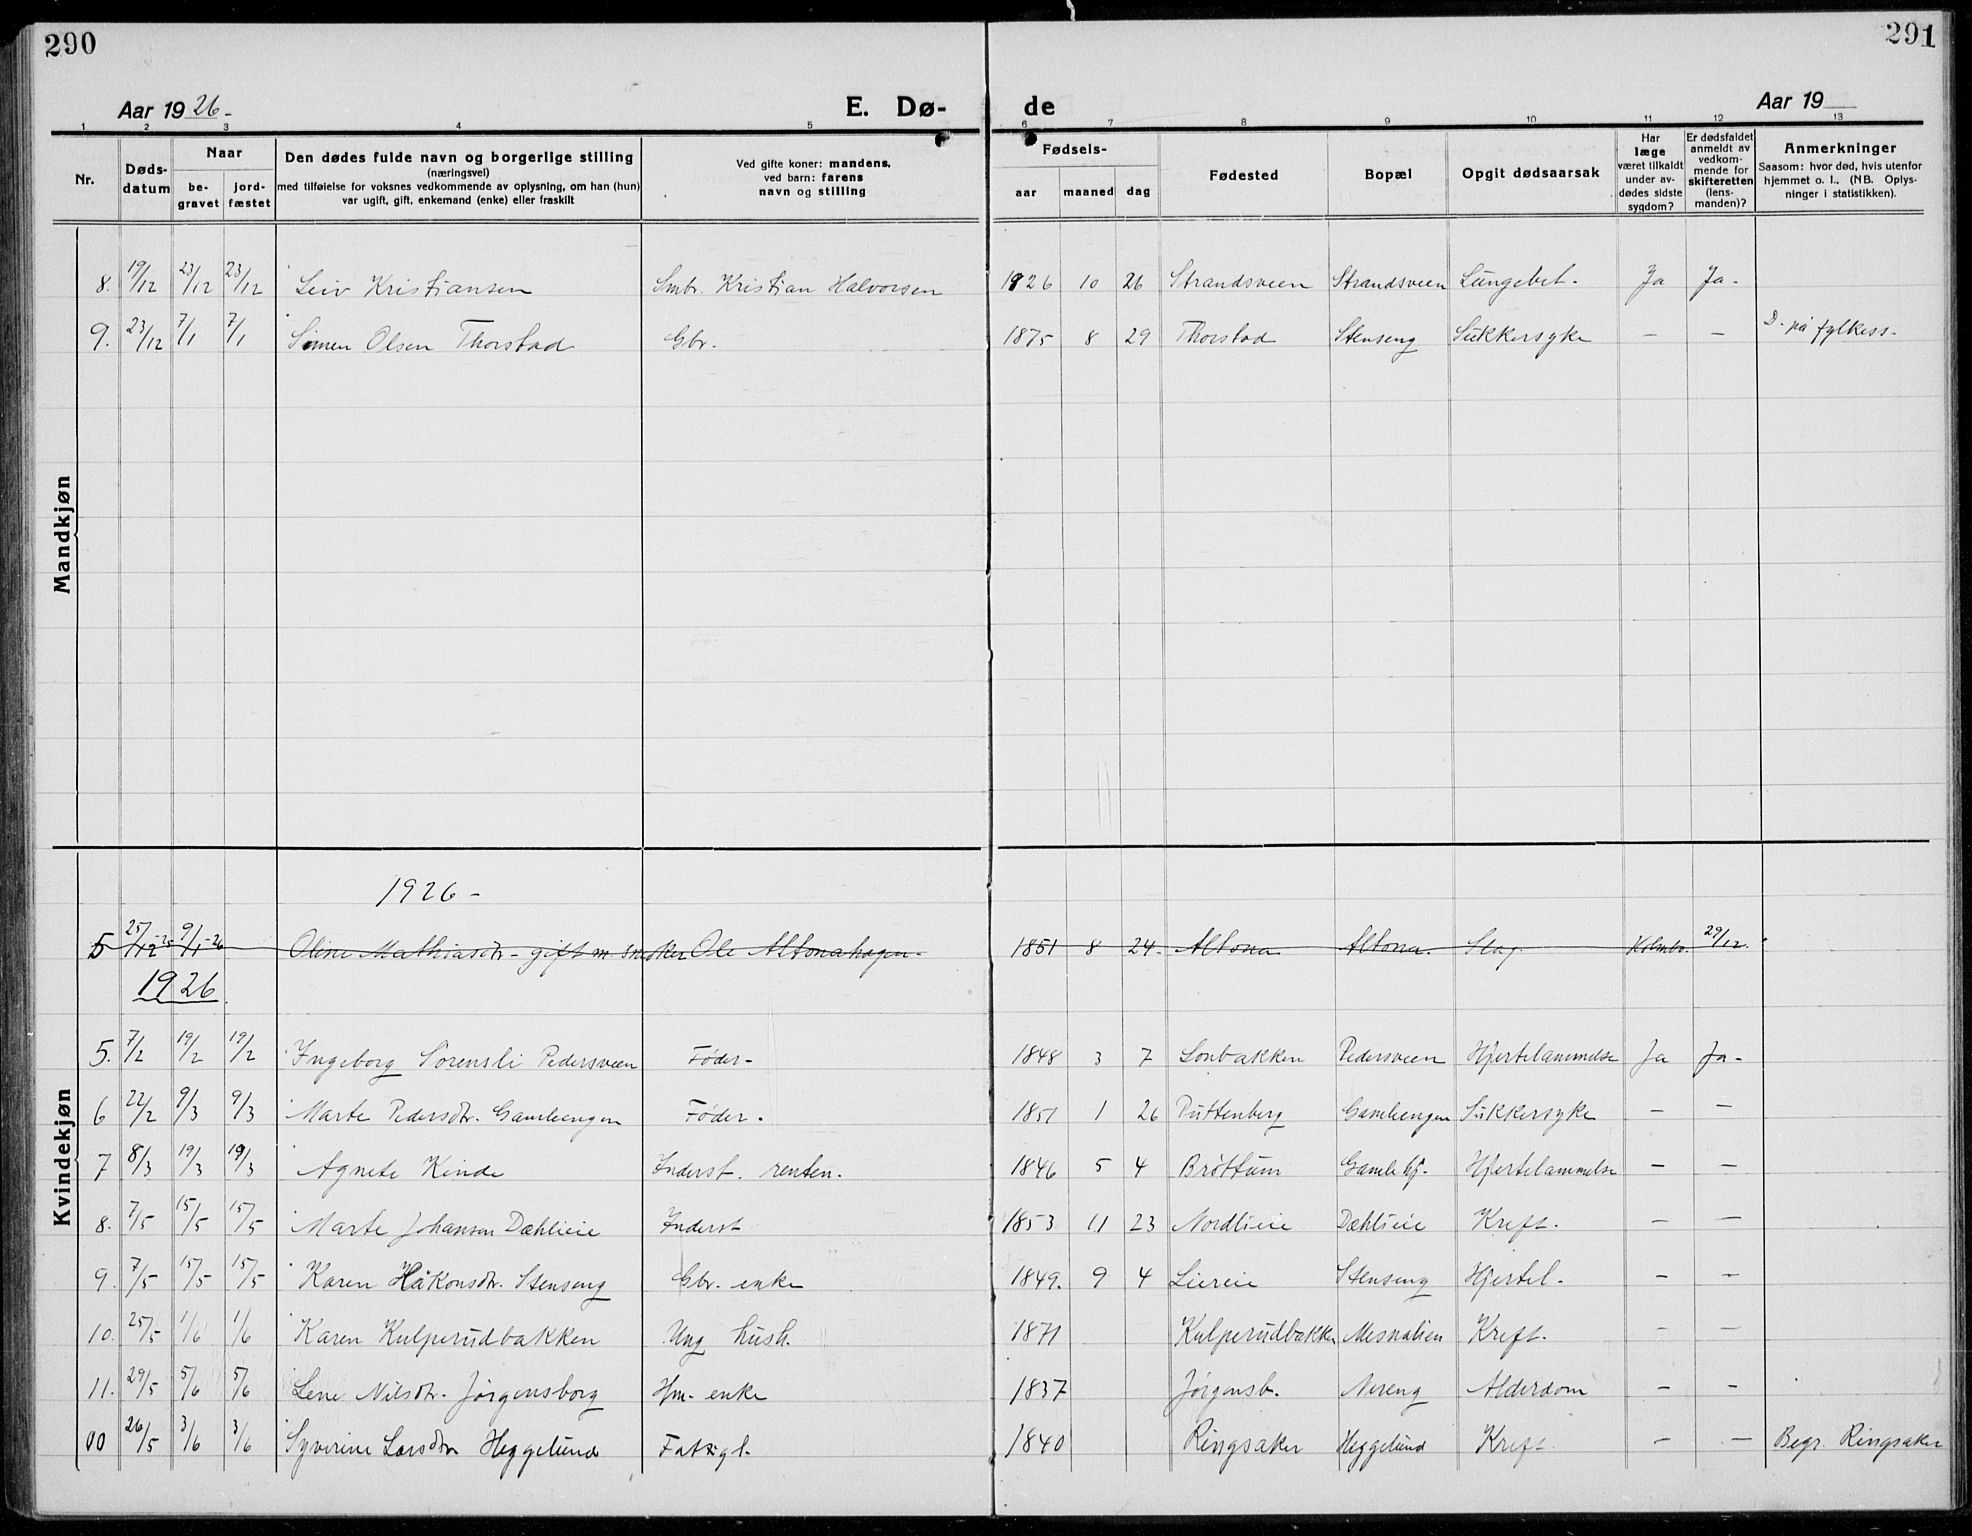 290
291
Aar 1926-
E. Dø-
de
Aar 19
1 2 3 4 5 6 7 8 9 10 11 12 13
Nr.
Døds-
datum
Naar
be-
gravet
jord-
fæstet
Den dødes fulde navn og borgerlige stilling
(næringsvei)
med tilføielse for voksnes vedkommende av oplysning, om han (hun)
var ugift, gift, enkemand (enke) eller fraskilt
Ved gifte koner: mandens,
ved barn: farens
navn og stilling
Fødsels-
aar maaned dag
Fødested
Bopæl
Opgit dødsaarsak
Har
læge
været tilkaldt
under av-
dødes sidste
sygdom?
Er dødsfaldet
anmeldt av
vedkom-
mende for
skifteretten
(lens-
manden)?
Anmerkninger
Saasom: hvor død, hvis utenfor
hjemmet o. l., (NB. Oplys-
ninger i statistikken).
Mandkjøn
8. 19/12 23/12 23/12 Leiv Kristiansen Smbr. Kristian Halvorsen 1926 10 26 Strandsveen Strandsveen Lungebet. Ja Ja-
9. 23/12 7/1 7/1 Simen Olsen Thorstad Gbr. 1875 8 29 Thorstad Stenseng Sukkersyke — — D. på fylkess.
Kvindekjøn
1926-
5 25/12-25 9/1-26 Oline Mathiasdr- gift m snekker Ole Altonahagen- 1851 8 24. Altona Altona. Slag. Holmbo. 29/12.
1926
5. 7/2 19/2 19/2 Ingeborg Sorensli Pedersveen Føder- 1848 3 7 Lonbakken Pedersveen Hjertelammelse Ja Ja-
6 22/2 9/3 9/3 Marte Pedersdr. Gamleengen Føder. 1851 1 26 Puttenberg Gamleengen Sukkersyke — —
7 8/3 19/3 19/3 Agnete Kinde Inderst. renten. 1846 5 4 Brøttum Gamle hj. Hjertelammelse — —
8. 7/5 15/5 15/5 Marte Johansen Dæhlieie Inderst 1853 11 23 Nordlieie Dæhlieie Kreft. — —
9. 7/5 15/5 15/5 Karen Håkonsdr. Stenseng Gbr. enke 1849. 9 4 Liereie Stenseng Hjertel. — —
10. 25/5 1/6 1/6 Karen Kulperudbakken Ung hush. 1871 Kulperudbakken Mesnalien Kreft. — —
11. 29/5 5/6 5/6 Lene Nilsdtr. Jørgensborg Hm- enke 1837 Jørgensb. Nereng Alderdom — —
00 26/5 3/6 3/6 Syverine Larsdtr Heggelund Fattigl. 1840 Ringsaker Heggelund Kreft. — — Begr. Ringsaker